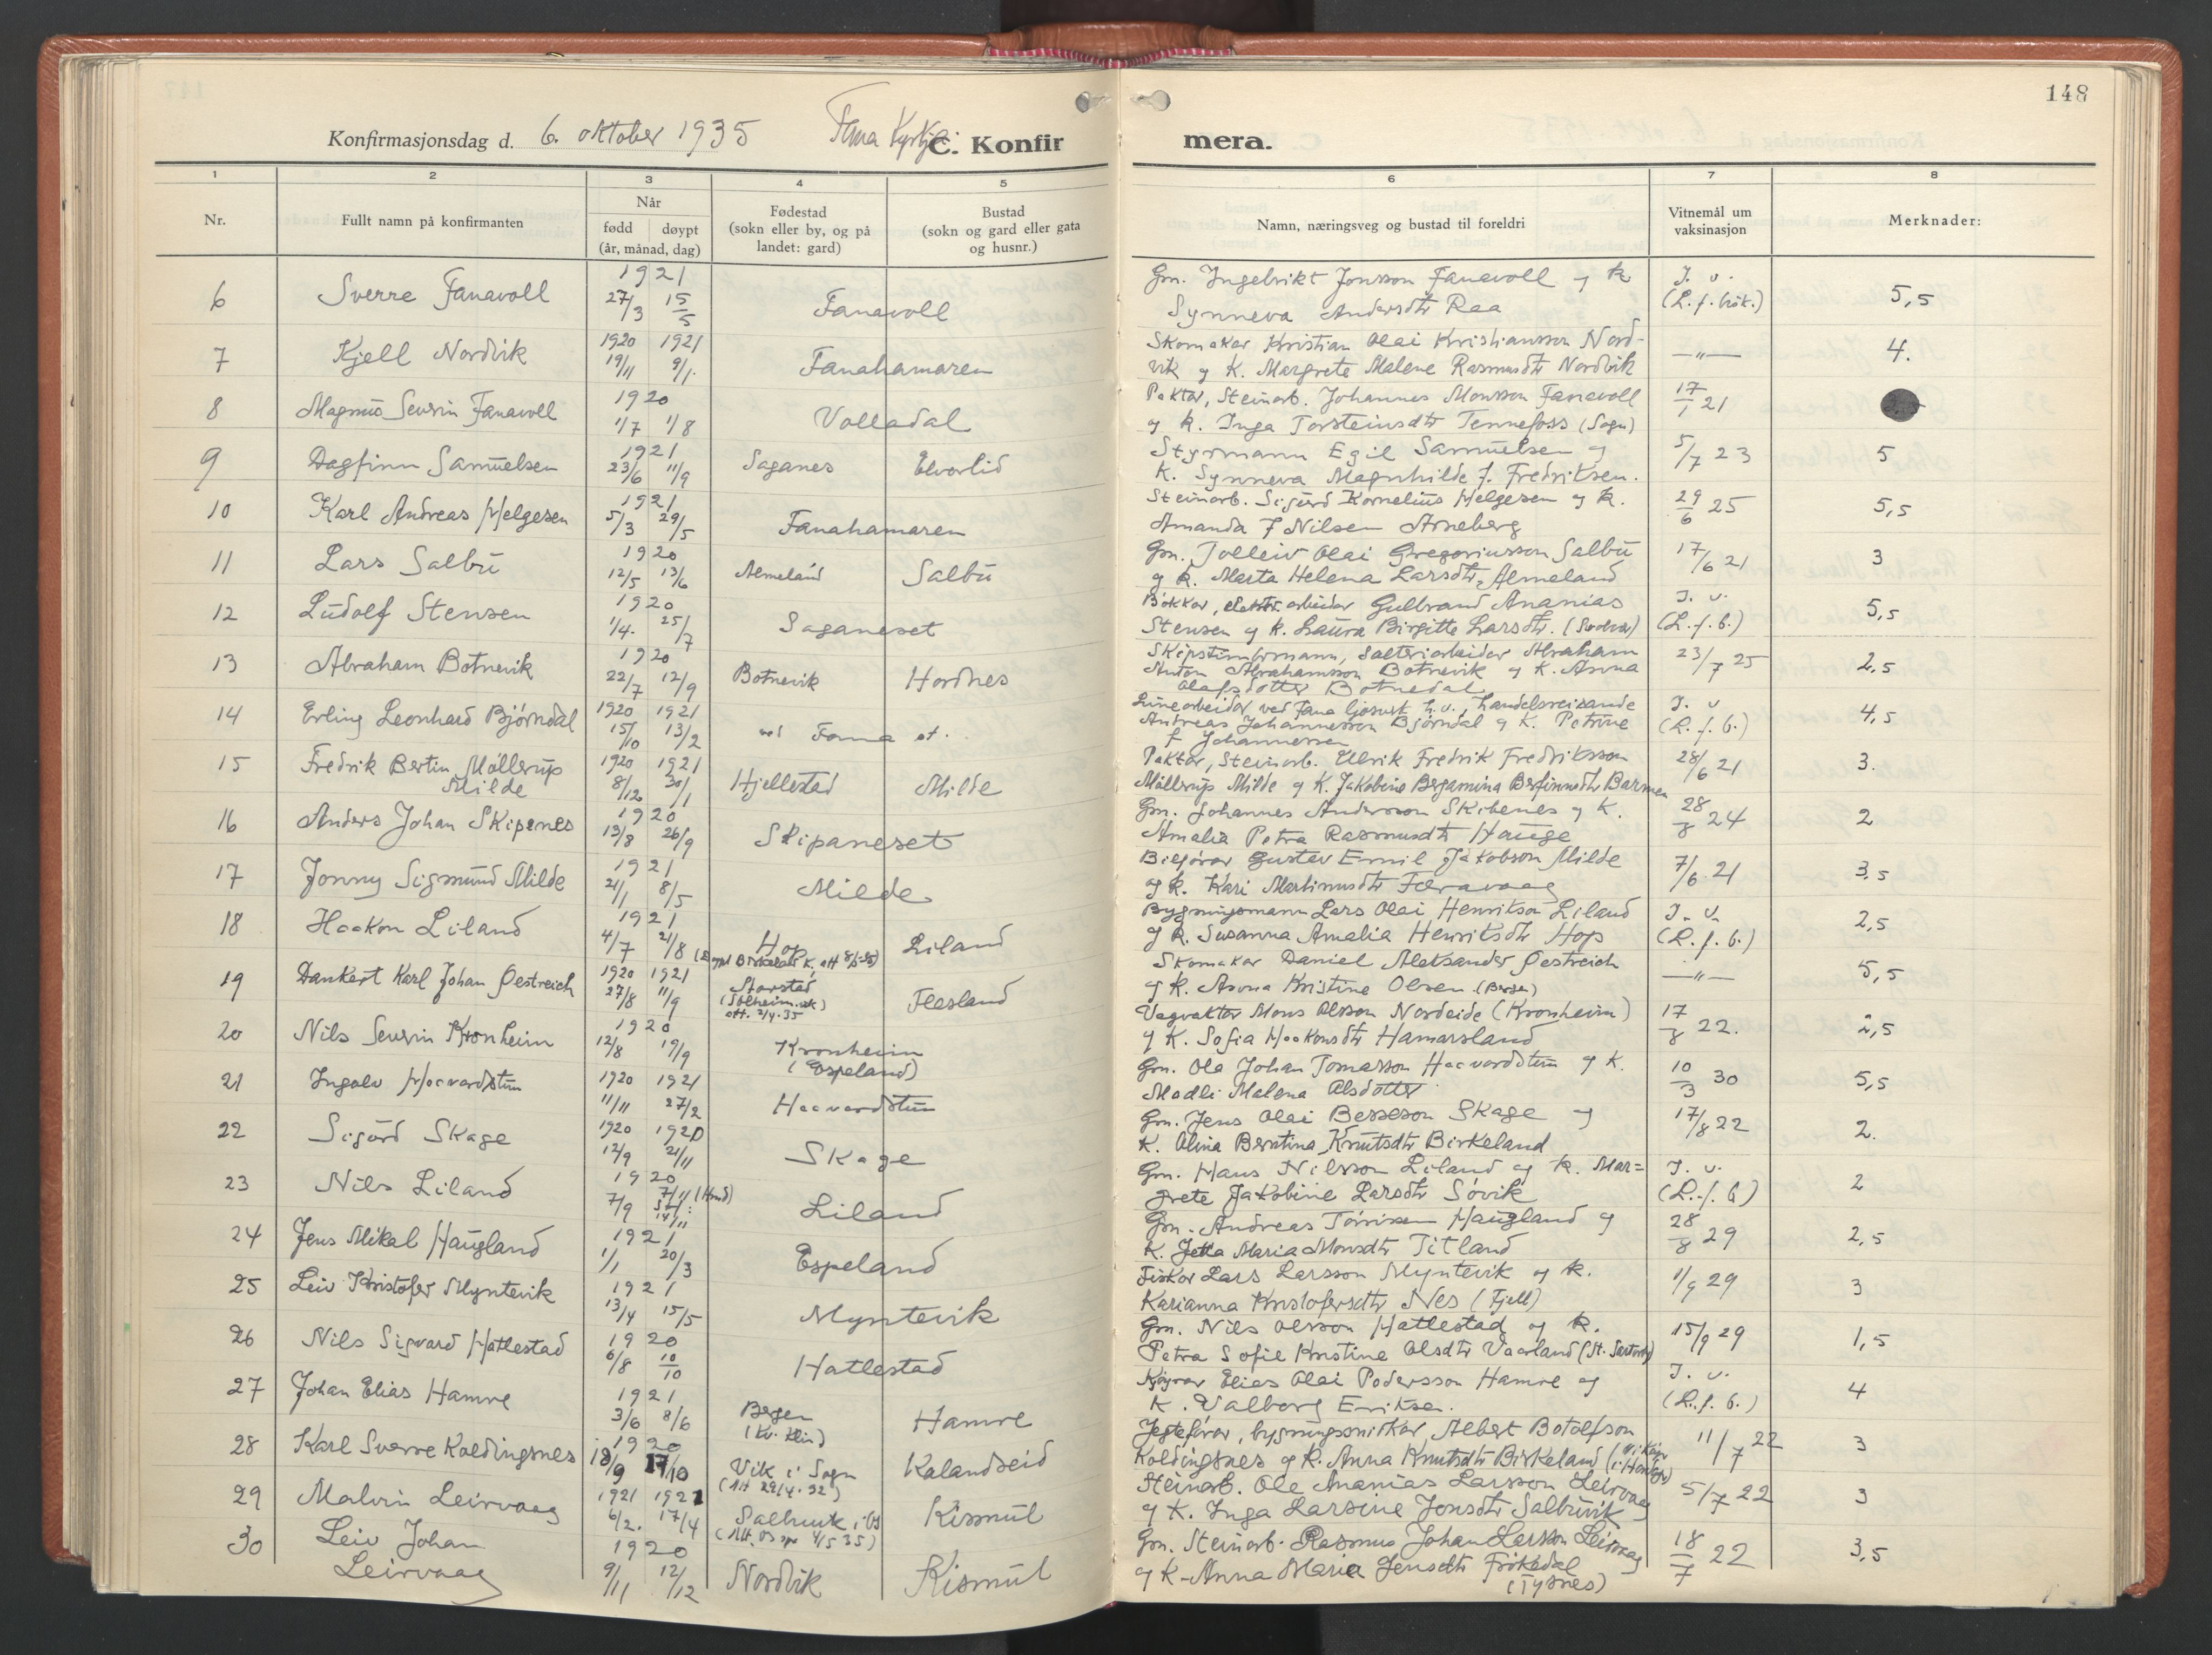 148
Konfirmasjonsdag d. 6. oktober 1935 Fana Kyrkje C. Konfirmera.
1 2 3 4 5 6 7 8
Nr. Fullt namn på konfirmanten Når fødd døypt (år, månad, dag) Fødestad (sokn eller by, og på landet: gard) Bustad (sokn og gard eller gata og husnr.) Namn, næringsveg og bustad til foreldri Vitnemål um vaksinasjon Merknader:
6 Sverre Fanavoll 1921 27/3 15/5 Fanavoll Gm. Ingebrikt Jonsson Fanavoll og k. J. v. 5,5
Synneva Andersdtr Raa (L. f. bók.)
7 Kjell Nordvik 1920 19/11 1921 9/1. Fanahamaren Skomakar Kristian Olai Kristiansson Nord- —"— 4.
vik og K. Margrete Malene Rasmusdtr Nordvik
8 Magnus Severin Fanavoll 1920 1/7 1/8 Volladal Paktar, Steinarb. Johannes Monsson Fanavoll 17/1 21
og k. Inga Torsteinsdtr Tennefoss (Sogn)
9 Dagfinn Samuelsen 1921 23/6 11/9 Saganes Elvarlid Styrmann Egil Samuelsen og 5/7 23 5
K. Synneva Magnhilde f. Fredriksen.
10 Karl Andreas Helgesen 1921 5/3 29/5 Fanahamaren Steinarb. Sigurd Kornelius Helgesen og k. 29/6 25 5,5
Amanda f Nilsen Arneberg
11 Lars Salbu 1920 12/5 13/6 Almeland Salbu Gm. Tolleiv Olai Gregoriusson Salbu 17/6 21 3
og k. Marta Helena Larsdtr Almeland
12 Ludolf Stensen 1920 1/4. 25/7 Saganeset Bøkkar, elektr. arbeidar Gulbrand Ananias J. v. 5,5
Stensen og k. Laura Birgitte Larsdtr. (L. f. b.)
13 Abraham Botnevik 1920 22/7 12/9 Botnevik Hordnes Skipstimbrmann, salteriarbeidar Abraham 23/7 25 2,5
Anton Abrahamsson Botnevik og K. Anna
Olafsdotter Botnedal
14 Erling Leonhard Bjørndal 1920 15/10 1921 13/2 ved Fana st. Linearbeidar ved Fana ljosverk h.v., handelsreisande J. v 4,5
Andreas Johannesson Bjørndal og K. Petrine (L. f. b.)
f Johannessen
15 Fredrik Bertin Møllerup 1920 8/12 1921 30/1 Hjellestad Milde Paktar, Steinarb. Ulrik Fredrik Fredriksson 28/6 21 3.
Milde Møllerup Milde og K. Jakobine Bergamina Berfinnsdtr Barmen
16 Anders Johan Skipenes 1920 13/8 26/9 Skipaneset Gm. Johannes Andersson Skibenes og K. 28/8 24 2
Amalia Petra Rasmusdtr Hauge
17 Jonny Sigmund Milde 1921 21/1 8/5 Milde Bilførar Gustav Emil Jakobson Milde 7/6. 21 3,5
og k. Kari Martinusdtr Færavaag
18 Haakon Liland 1921 4/7 21/8 Hop Liland Bygningsmann Lars Olai Henrikson Liland J. v. 2,5
og k. Susanna Amalia Henriksdtr Hop (L. f. b.)
19 Dankert Karl Johan Østreich 1920 27/8 1921 11/9 Storstad Flesland Skomakar Daniel Aleksander Østreich —"— 5,5
(Solheim. sk) att. 2/4. 35 og k. Anna Kristine Olsen (Bergen)
20 Nils Severin Kronheim 1920 12/8 19/9 Kronheim Vegvaktar Mons Olsson Nordeide (Kronheim) 17/8 22. 2,5
(Espeland) og K. Sofia Haakonsdtr Hamarsland
21 Ingolv Haavardstun 1920 11/11 1921 27/2 Haavardstun Gm. Ola Johan Tomasson Haavardstun og K. 10/3 30 5,5
Madli Malena Olsdotter
22 Sigurd Skage 1920 12/9 1920 21/11 Skage Gm. Jens Olai Besseson Skage og 17/8 22 2.
K. Alina Berntina Knutsdtr Birkeland
23 Nils Liland 1920 7/9 7/11 14/11 Liland Gm. Hans Nilsson Liland og k. Mar= J. v. 2
grete Jakobine Larsdtr Søvik (L. f. b)
24 Jens Mikal Haugland 1921 1/1 20/3 Espeland Gm. Andreas Haugland og 28/8 29 2,5
K. Jetta Maria Monsdtr Titland
25 Leiv Kristofer Myntevik 1921 13/4 15/5 Myntevik Fiskar Lars Larsson Myntevik og k. 1/9 29 3
Karianna Kristofersdtr Nes (Fjell)
26 Nils Sigvard Hatlestad 1920 6/8 10/10 Hatlestad Gm. Nils Olsson Hatlestad og k. 15/9 29 1,5
Petra Sofie Kristine Olsdtr Vaarland
27 Johan Elias Hamre 1921 3/6 8/6 Bergen Hamre Køyrar Elias Olai Pedersson Hamre og J. v. 4
K. Valborg Eriksen. (L. f. b.)
28 Karl Sverre Koldingsnes 1920 18/9 17/10 Vik i Sogn Kalandseid Jegteførar, bygningssnikkar, Albert Botolfson 11/7 22 3
(Att 29/4. 32) Koldingsnes og k. Anna Knutsdtr Birkeland
29 Malvin Leirvaag 1921 6/2. 1921 17/4 Salhuvik i Os Kismul Steinarb. Ole Ananias Larsson Leirvaag 5/7 22 3
og K. Inga Larsine Jonsdtr Salbuvik
30 Leiv Johan 1920 9/11 12/12 Nordvik Kismul Gm. Steinarb. Rasmus Johan Larsson Leirvaag 18/7 22 3,5
Leirvaag og k. Anna Maria Jensdtr Fiskedal
(Tysnes)